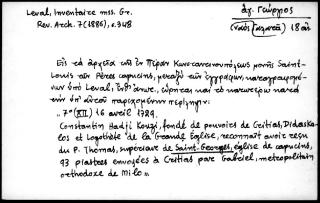 Leval, Inventaire mss. Gr.
Rev. Arch. 7 (1886), σ. 348
ἁγ. Γεώργιος
(ναὸς Γαλατᾶ) 18 αἰ.
Εἰς τὰ ἀρχεῖα τῆς ἐν Πέραν Κωνσταντινουπόλεως μονῆς Saint-
Louis τῶν Pères capucins, μεταξὺ τῶν ἐγγράφων καταγραφομέ-
νων ὑπὸ Leval, ἔνθ' ἄνωτ., εὑρηται καὶ τὸ κατωτέρω κατὰ
τὴν ὑπ' αὐτοῦ παρεχομένην περίληψιν:
„ 7º (XII) 16 avril 1729.
Constantin Hadji Kouzi, fondé de pouvoirs de Critias, Didaska-
los et Logothète de la Grande Église, reconnaît avoir reçu
du P. Thomas, supérieur de Saint-Georges, église de capucins,
93 piastres envoyées à Critias par Gabriel, metropolitain
orthodoxe de Milo"